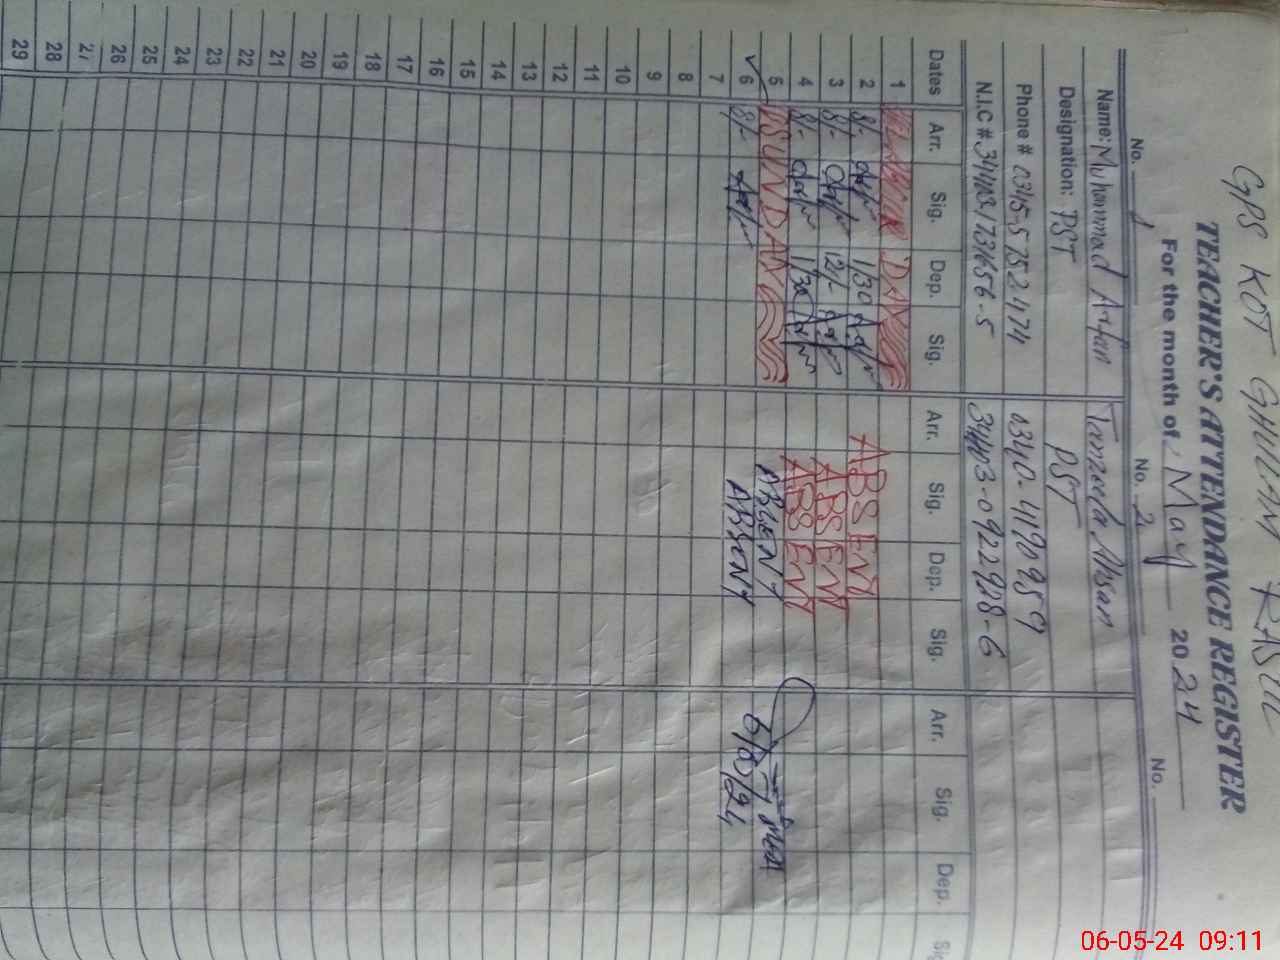 GPS KOT GHULAM RASUL
TEACHER'S ATTENDANCE REGISTER
For the month of May 2024
No. 1 No. 2 No.
Name: Muhammad Arfan Tanzeela Ahsan
Designation: PST PST
Phone # 0345-5752474 0340-4190959
N.I.C # 34403-0922928-6
Dates Arr. Sig. Dep. Sig. Arr. Sig. Dep. Sig. Arr. Sig. Dep. Sig
1 DAY
2 8/- 1/30 ABSENT
3 8/- 12/- ABSENT
4 8/- 1/30 ABSENT
5 SUNDAY ABSENT
6 8/- ABSENT 6/5/24
7
8
9
10
11
12
13
14
15
16
17
18
19
20
21
22
23
24
25
26
27
28
29
06-05-24 09:11